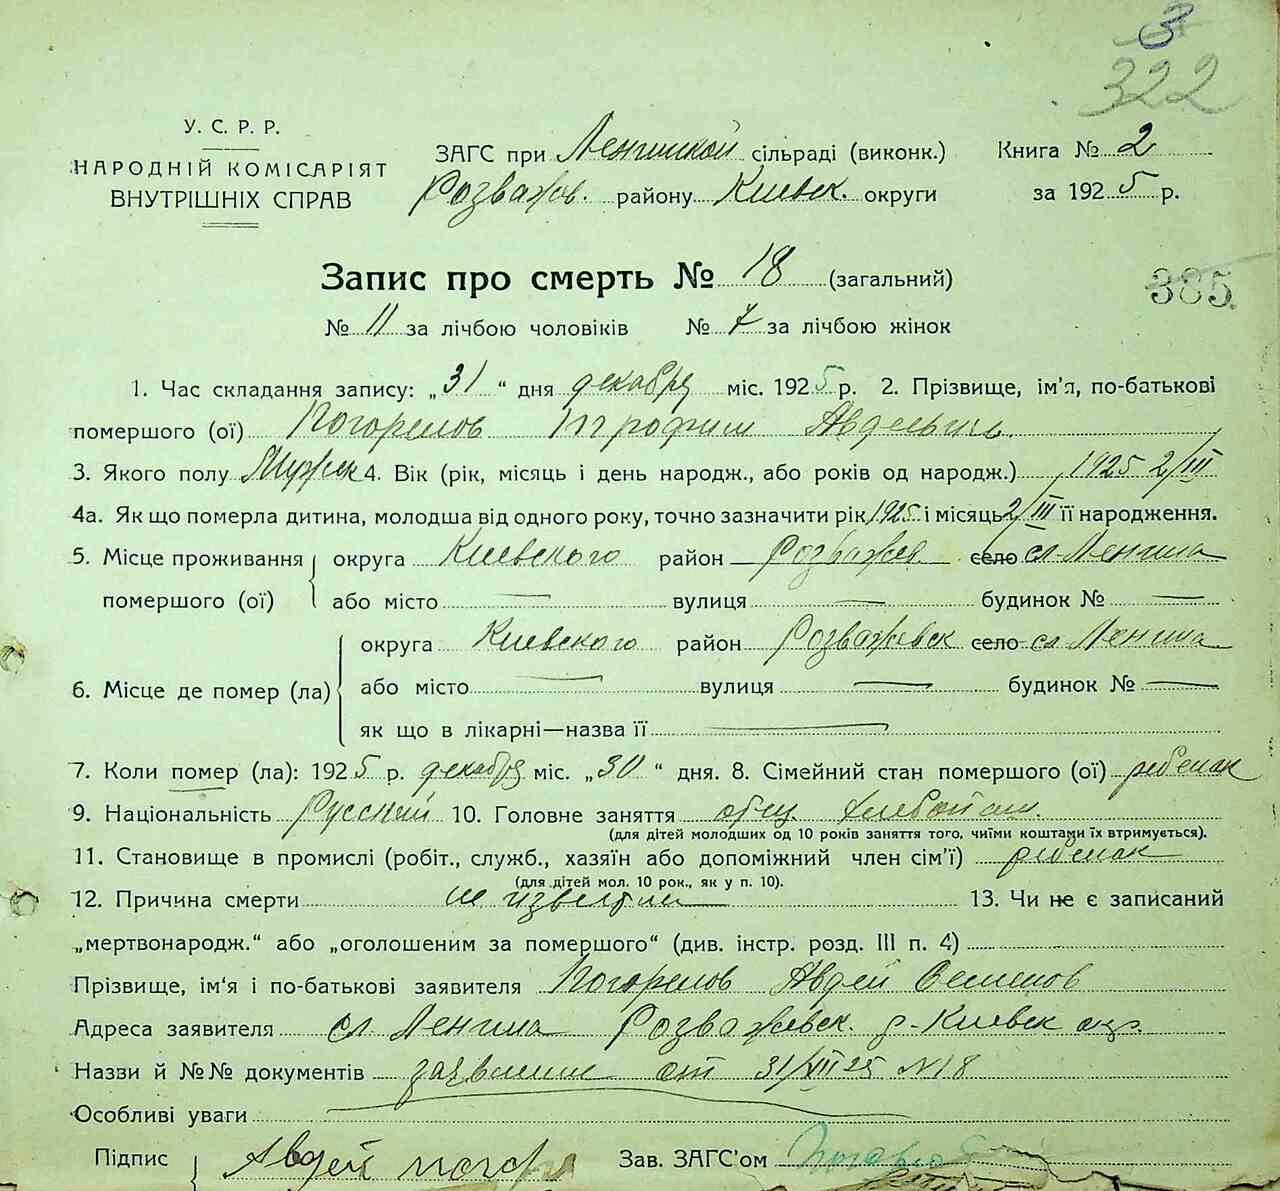 3
322
У. С. Р. Р.
НАРОДНІЙ КОМІСАРІЯТ
ВНУТРІШНІХ СПРАВ
ЗАГС при сільраді (виконк.) Книга № 2
Розважов. району Киевск. округи за 1925 р.
Запис про смерть № 18 (загальний)
385.
№ 11 за лічбою чоловіків № 7 за лічбою жінок
1. Час складання запису: „31“ дня декабря міс. 1925 р. 2. Прізвище, ім’я, по-батькові
помершого (ої) Погорелов Трофим Авдеевич
3. Якого полу Мужск 4. Вік (рік, місяць і день народж., або років од народж.) 1925 2/III
4а. Як що померла дитина, молодша від одного року, точно зазначити рік 1925 і місяць 2/III її народження.
5. Місце проживання округа Киевского район Розважев. село сл Ленина
помершого (ої) або місто — вулиця — будинок № —
6. Місце де помер (ла) округа Киевского район Розважевск село сл Ленина
або місто — вулиця — будинок № —
як що в лікарні—назва її —
7. Коли помер (ла): 1925 р. декабря міс. „30“ дня. 8. Сімейний стан помершого (ої) ребенак
9. Національність Русский 10. Головне заняття
(для дітей молодших од 10 років заняття того, чиїми коштами їх втримується).
11. Становище в промислі (робіт., служб., хазяїн або допоміжний член сім’ї) ребенак
(для дітей мол. 10 рок., як у п. 10).
12. Причина смерти не извесна 13. Чи не є записаний
„мертвонародж.“ або „оголошеним за помершого“ (див. інстр. розд. III п. 4)
Прізвище, ім’я і по-батькові заявителя Погорелов Авдей
Адреса заявителя сл Ленина Розважевск. р- Киевск окр.
Наззи й №№ документів заявление от 31/XII 25 N 18
Особливі уваги
Підпис Авдей Зав. ЗАГС’ом